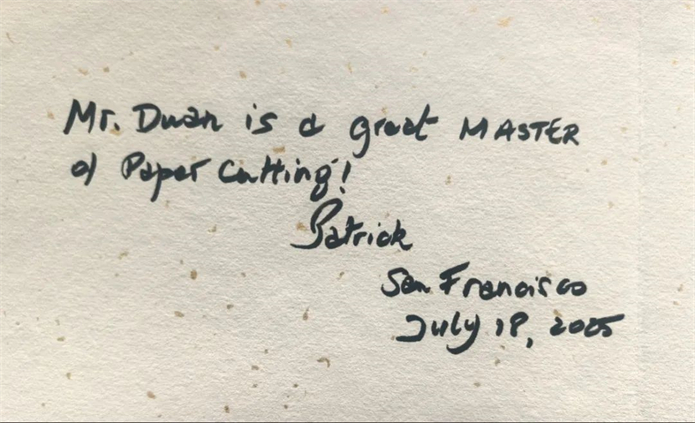 Mr. Duan is a great MASTER
of Paper Cutting!
Patrick
San Francisco
July 18, 2005